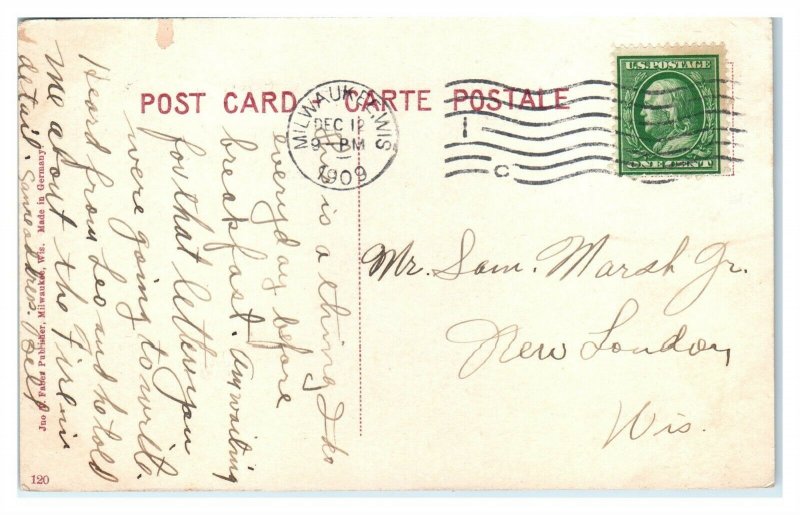 POST CARD CARTE POSTALE
MILWAUKEE, WIS.
DEC 12
9-PM
1909
1
C
U.S. POSTAGE
ONE CENT
This is a thing I do
everyday before
breakfast. Am waiting
for that letter you
were going to write.
Heard from Leo and he told
me about the fire in
detail. Same address.
Mr. Sam. Marsh Jr.
New London,
Wis.
Publisher, Milwaukee, Wis. Made in Germany
120